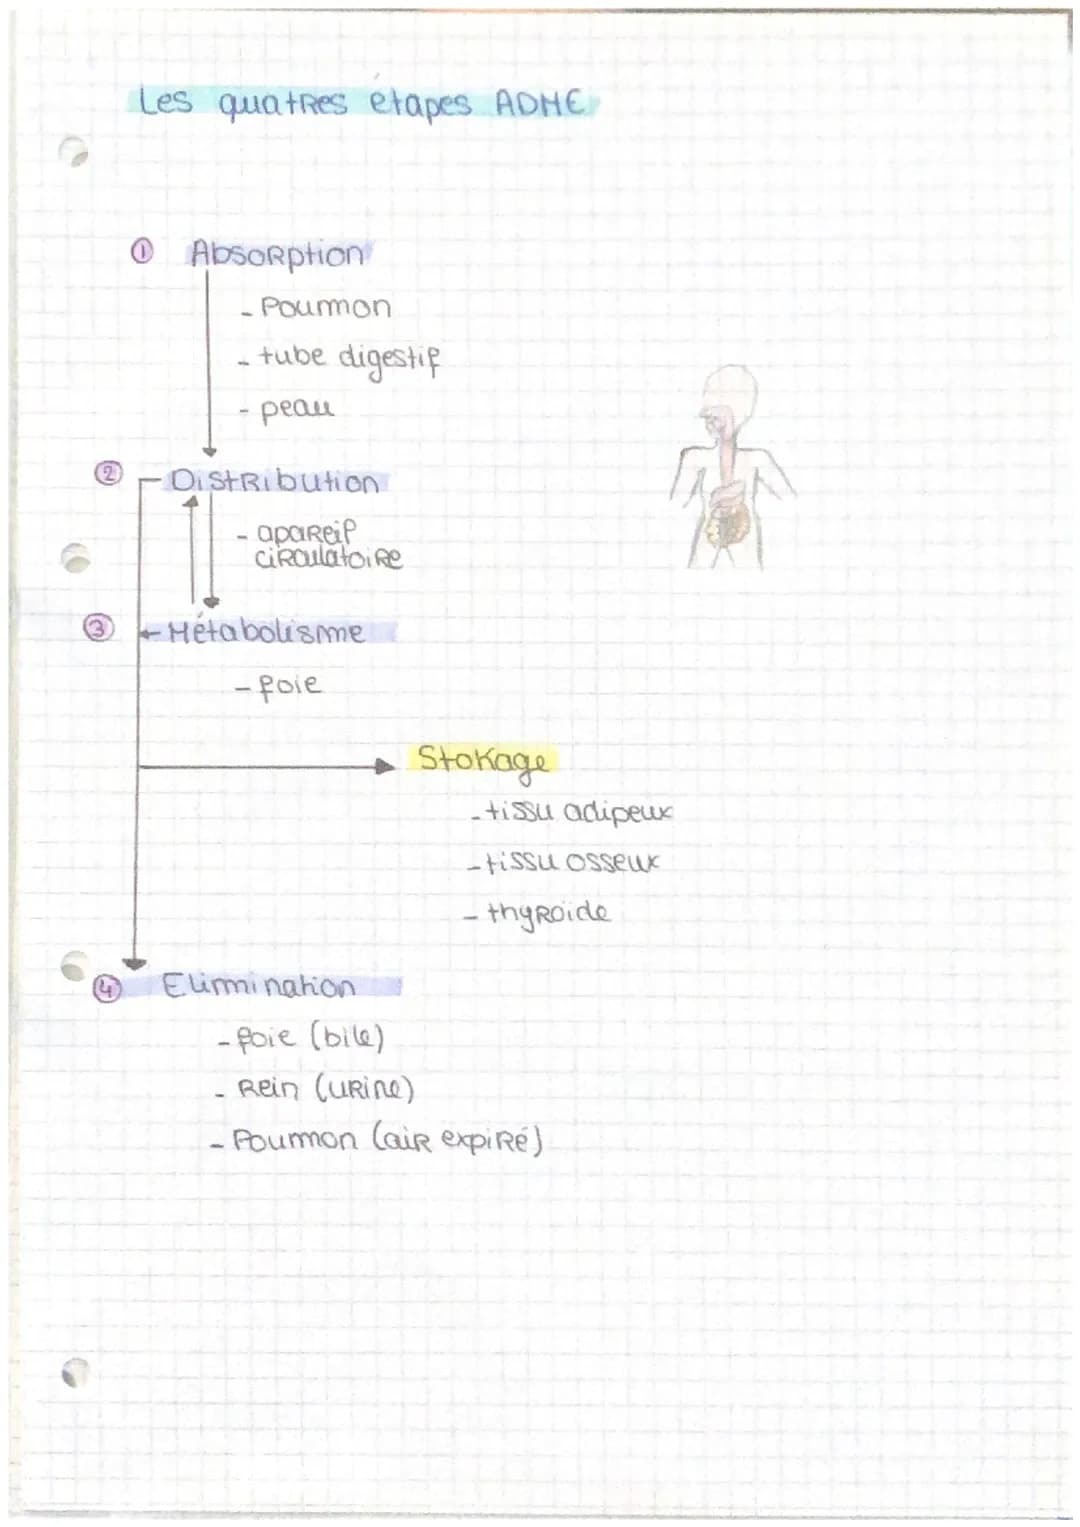 Les quatres étapes ADME
① Absorption
- Poumon
- tube digestif
- peau
② Distribution
- apareil
circulatoire
③ Métabolisme
- foie
Stokage
- tissu adipeux
- tissu osseux
- thyroide
④ Elimination
- foie (bile)
- Rein (urine)
- Poumon (air expiré)